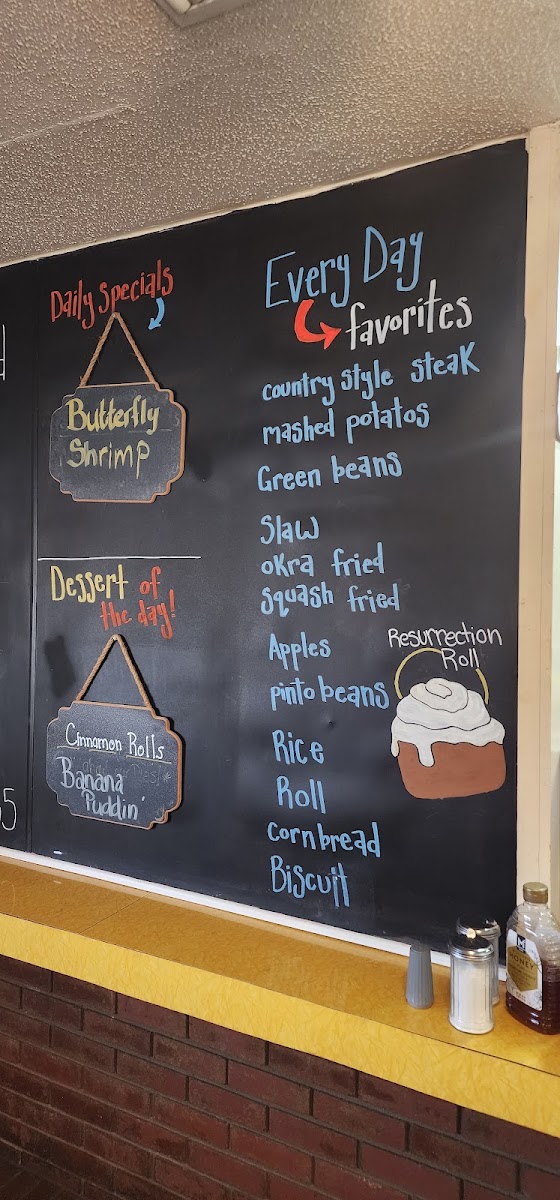 Daily Specials
Butterfly
Shrimp
Dessert of
the day!
Cinnamon Rolls
Banana
Puddin'
Every Day
favorites
country style steak
mashed potatos
Green beans
Slaw
okra fried
squash fried
Apples
pinto beans
Rice
Roll
cornbread
Biscuit
Resurrection
Roll
HONEY